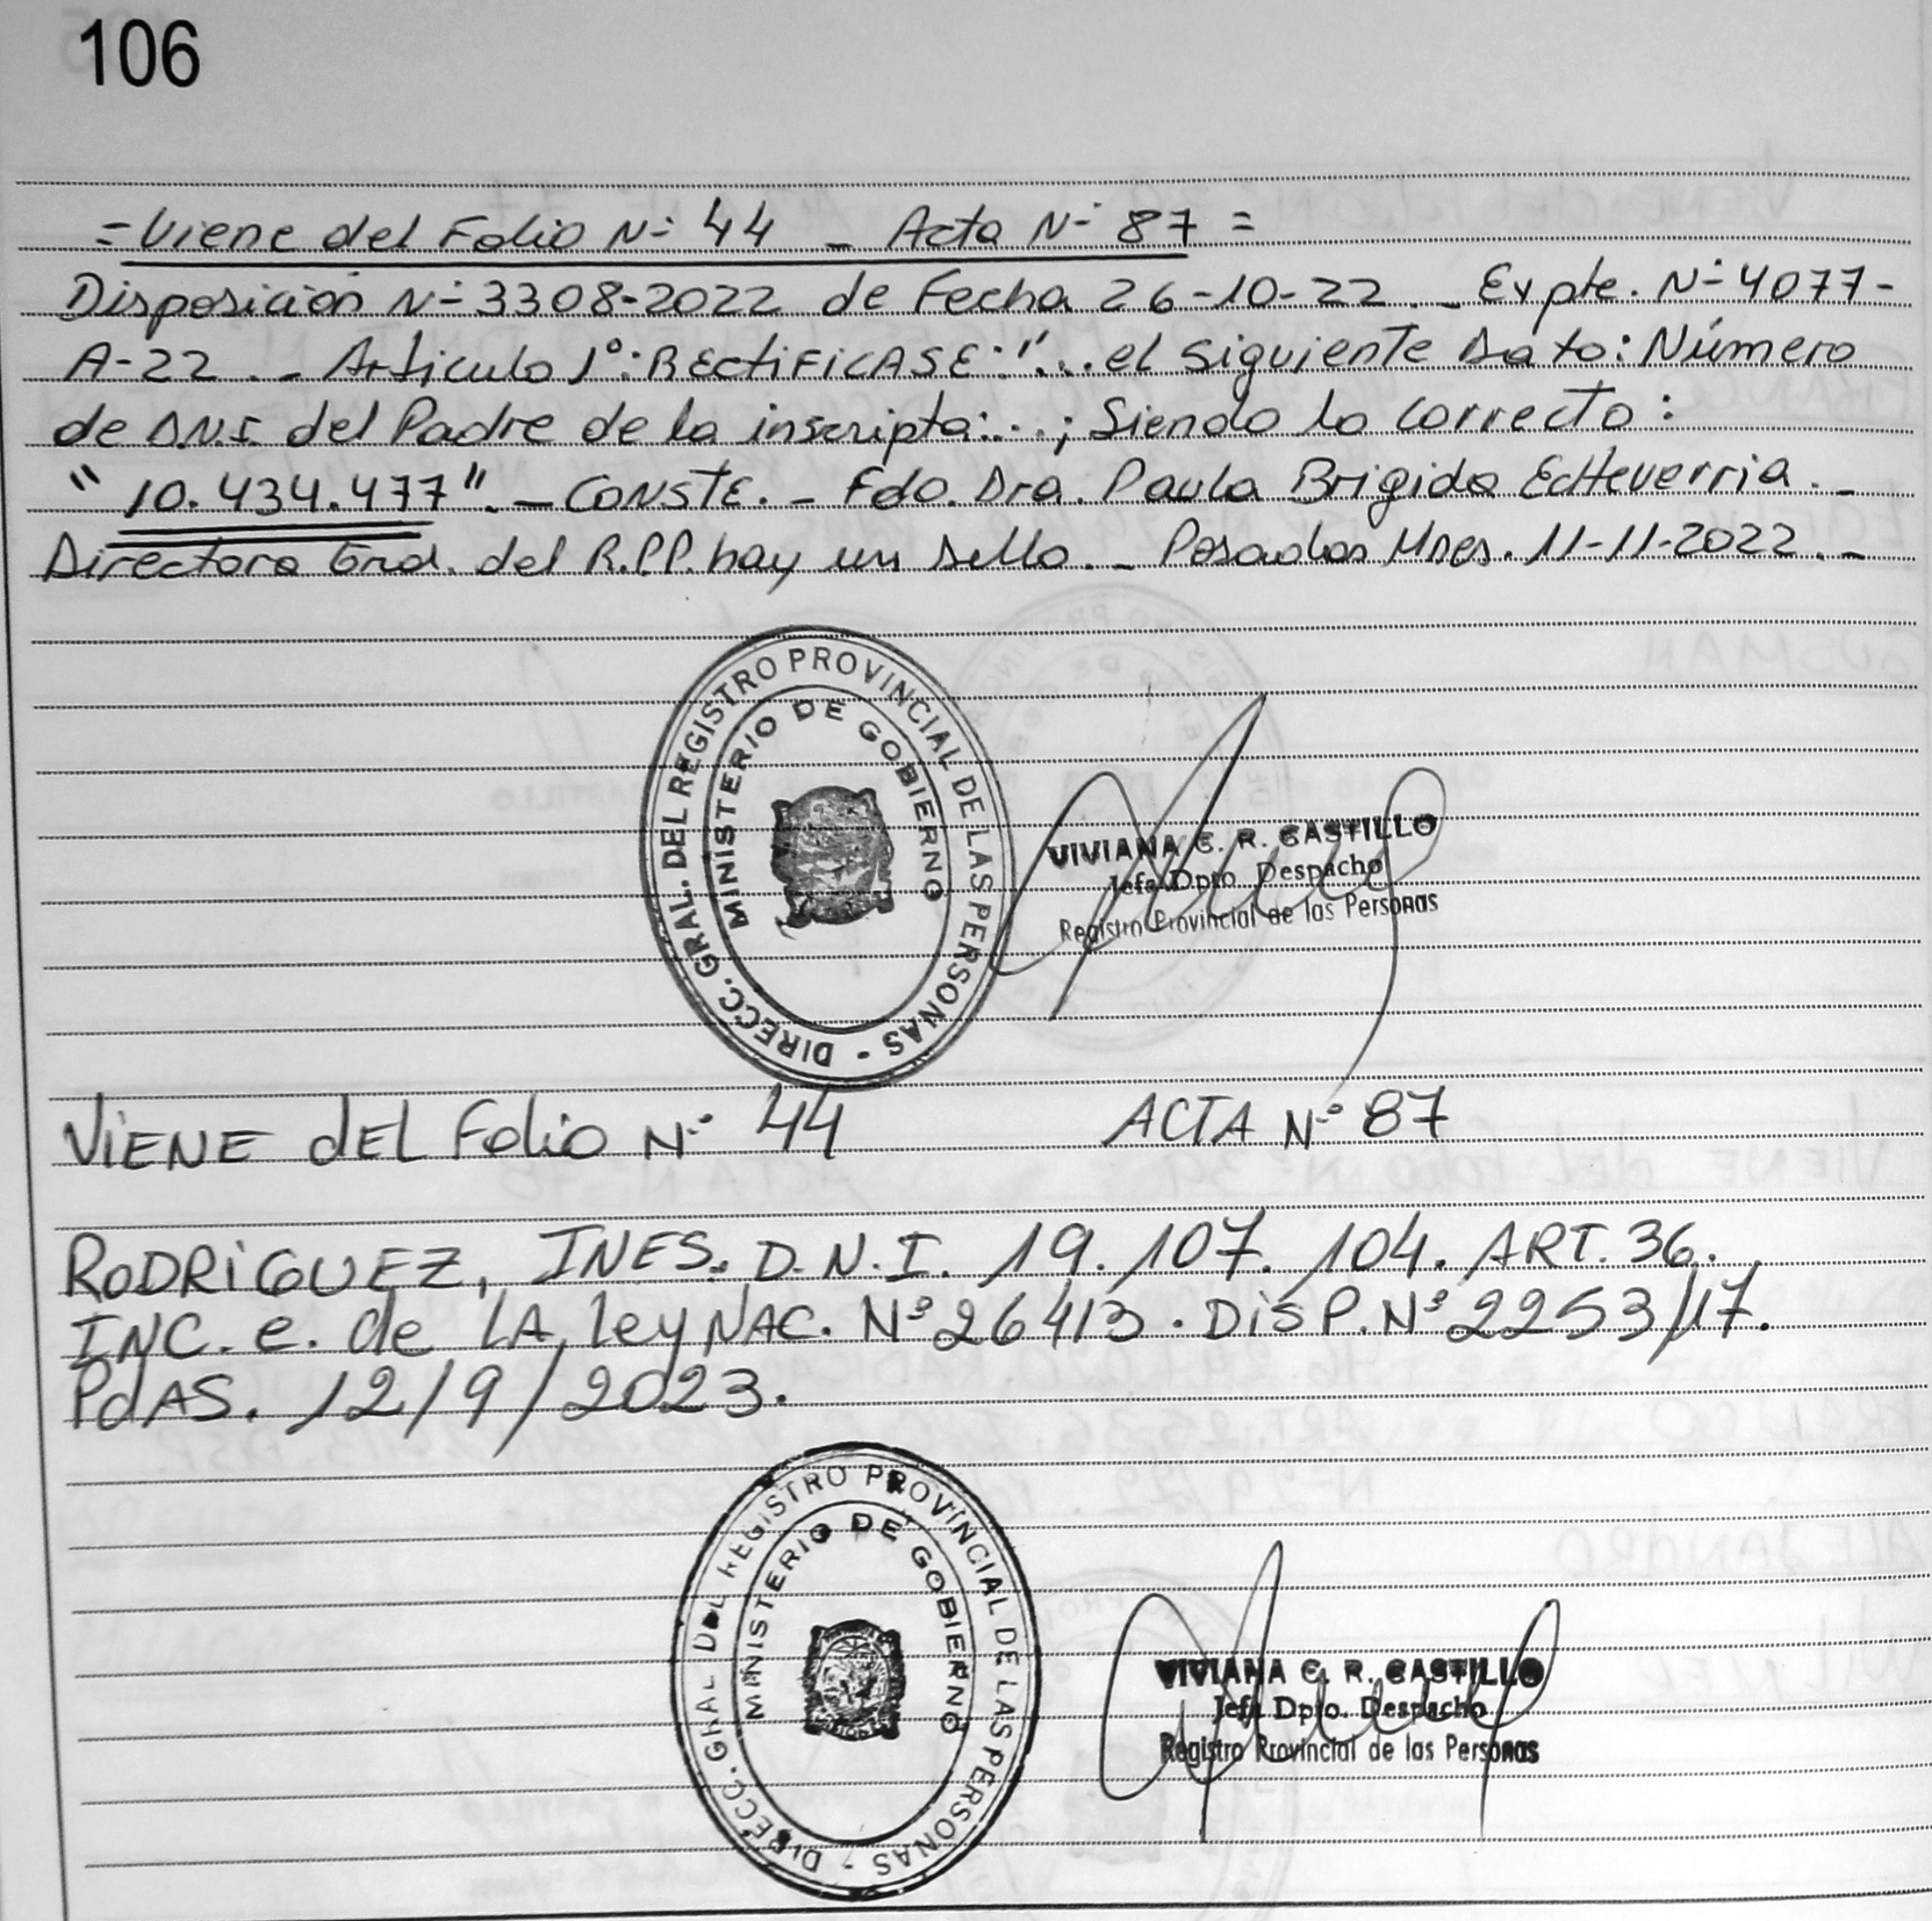 106
=Viene del Folio Nº 44 - Acta Nº 87=
Disposición Nº 3308-2022 de Fecha 26-10-22.- Expte. Nº 4077-
A-22.- Artículo 1º: RECTIFICASE: "...el siguiente Dato: Número
de D.N.I. del Padre de la inscripta:...; Siendo lo correcto:
"10.434.477".- CONSTE.- Fdo. Dra. Paula Brigida Echeverria.-
Directora Gral. del R.P.P. hay un sello.- Posadas Mnes. 11-11-2022.-
DIRECC. GRAL. DEL REGISTRO PROVINCIAL DE LAS PERSONAS -
MINISTERIO DE GOBIERNO
VIVIANA C. R. CASTILLO
Jefa Dpto. Despacho
Registro Provincial de las Personas
VIENE dEL Folio Nº 44 ACTA Nº 87
RODRIGUEZ, INES. D.N.I. 19.107.104. ART. 36.
INC. e. de LA Ley NAC. Nº 26413. DISP. Nº 2253/17.
PdAS. 12/9/2023.
DIRECC. GRAL DEL REGISTRO PROVINCIAL DE LAS PERSONAS -
MINISTERIO DE GOBIERNO
VIVIANA C. R. CASTILLO
Jefa Dpto. Despacho
Registro Provincial de las Personas